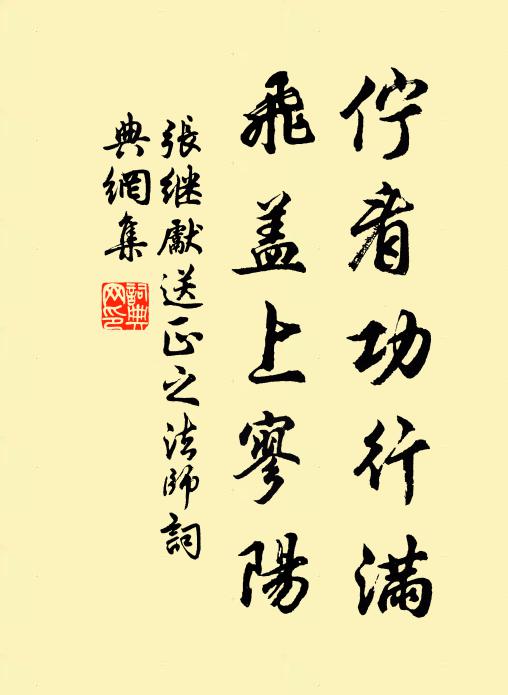 佇看功行满
飛盖上寥陽
張继獻送正之法師詞
典網集
詞典网印